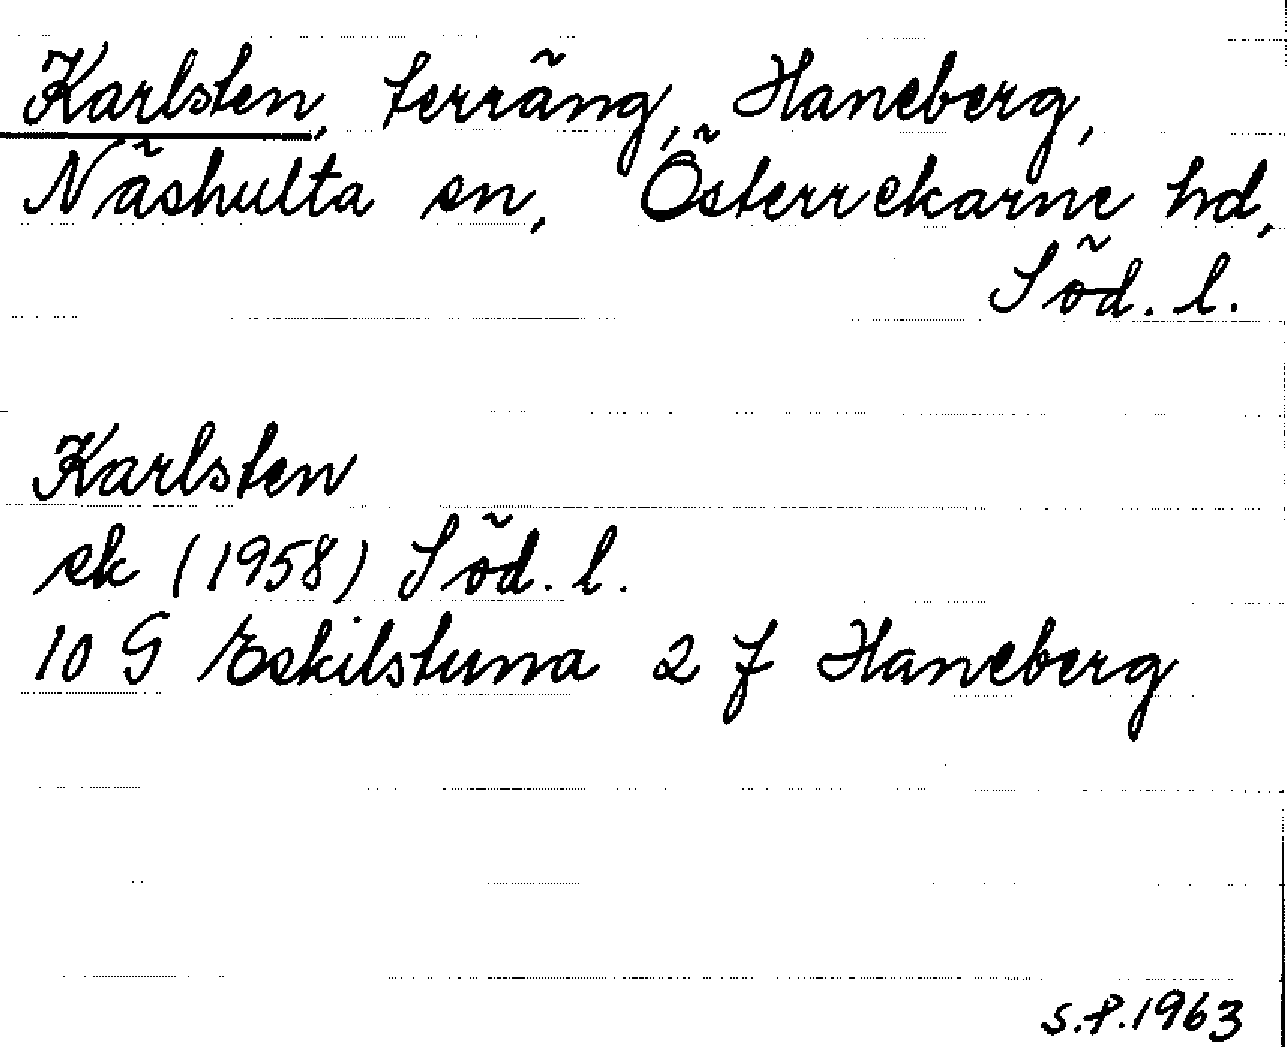 Karlsten, terräng, Haneberg,
Näshulta sn, Österrekarne hd,
Söd. l.
Karlsten
ek (1958) Söd. l.
10 G Eskilstuna 2 f Haneberg
S.P. 1963